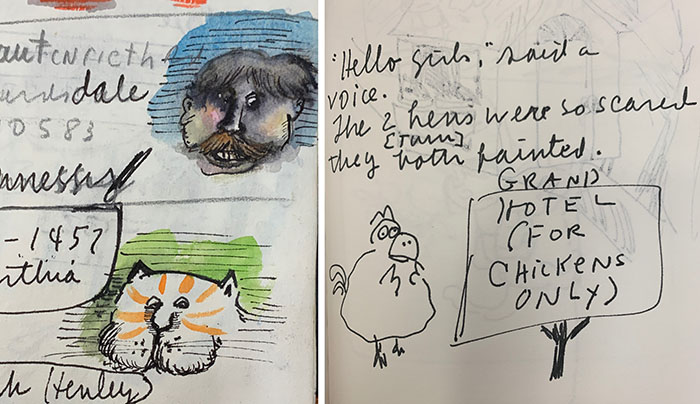 dale
0583
-1457
(Henley)
"Hello girls," said a
voice.
The 2 hens were so scared
[Turn]
they both fainted.
GRAND
HOTEL
(FOR
CHICKENS
ONLY)